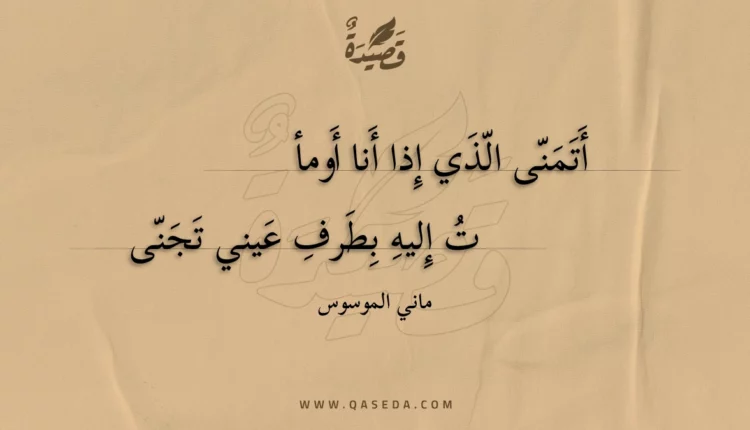 قَصِيْدَةٌ
أَتَمَنّى الّذَي إِذا أَنا أَومأ
تُ إِليهِ بِطَرفِ عَيني تَجَنّى
ماني الموسوس
WWW.QASEDA.COM